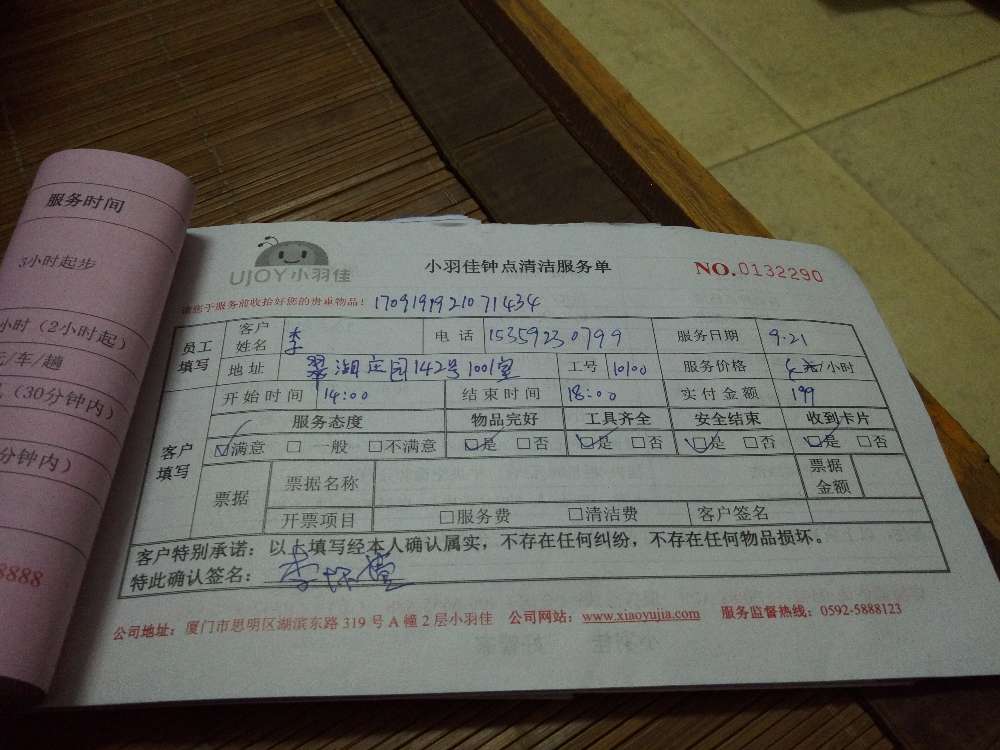 服务时间
3小时起步
小时（2小时起）
元/车/趟
（30分钟内）
分钟内）
8888
UJOY小羽佳
小羽佳钟点清洁服务单
NO.0132290
请您于服务前收拾好您的贵重物品：1709191921071434
员工填写 客户姓名 李 电话 15359230799 服务日期 9.21
地址 翠湖庄园142号1001室 工号 10100 服务价格 元/小时
客户填写 开始时间 14:00 结束时间 18:00 实付金额 199
服务态度 物品完好 工具齐全 安全结束 收到卡片
☑满意 □一般 □不满意 ☑是 □否 ☑是 □否 ☑是 □否 ☑是 □否
票据 票据名称 票据金额
开票项目 □服务费 □清洁费 客户签名
客户特别承诺：以上填写经本人确认属实，不存在任何纠纷，不存在任何物品损坏。
特此确认签名：李
公司地址：厦门市思明区湖滨东路319号A幢2层小羽佳 公司网站：www.xiaoyujia.com 服务监督热线：0592-5888123